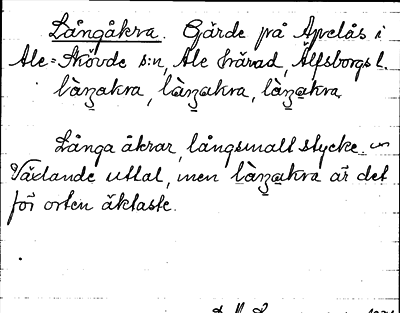 Långåkra. Gärde på Apelås i
Ale-Skövde s:n, Ale härad, Älfsborgs l.
làŋakra, làŋakra, làŋakra
Långa åkrar, långsmalt stycke.
Växlande uttal, men làŋakra är det
för orten äktaste.